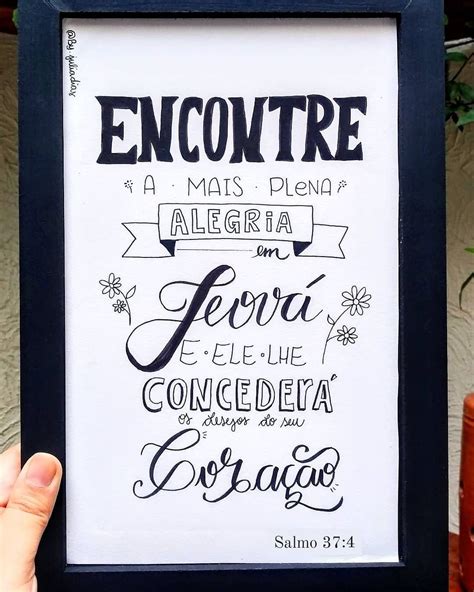 @By juliadias
ENCONTRE
A • MAIS • PLENA
ALEGRIA
em
Jeová
E • ELE • LHE
CONCEDERÁ
os desejos do seu
Coração
Salmo 37:4